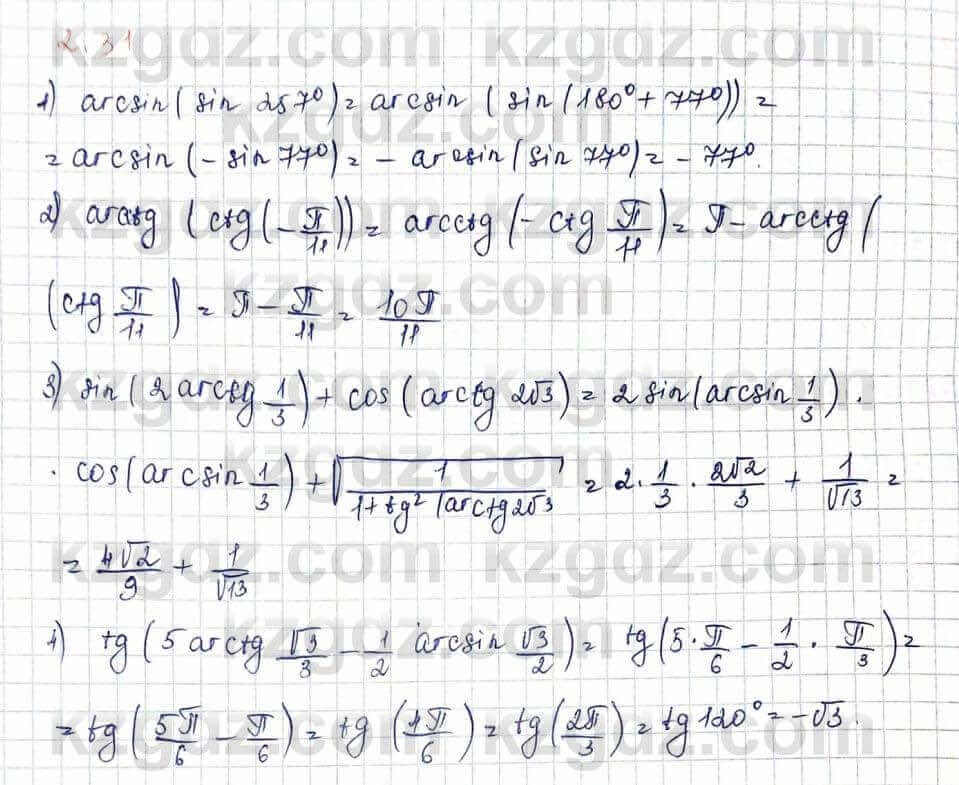 2.31
1) arcsin(sin 257°) = arcsin (sin(180° + 77°)) =
= arcsin (- sin 77°) = - arcsin(sin 77°) = - 77°.
2) arcctg (ctg(- π/11)) = arcctg (- ctg π/11) = π - arcctg (
(ctg π/11) = π - π/11 = 10π/11
3) sin(2 arcctg 1/3) + cos (arctg 2√3) = 2 sin(arcsin 1/3) ·
· cos(arcsin 1/3) + √(1/(1 + tg² (arctg 2√3) = 2 · 1/3 · 2√2/3 + 1/√13 =
= 4√2/9 + 1/√13
4) tg (5 arctg √3/3 - 1/2 arcsin √3/2) = tg(5 · π/6 - 1/2 · π/3) =
= tg (5π/6 - π/6) = tg (4π/6) = tg (2π/3) = tg 120° = -√3.
kzgdz.com